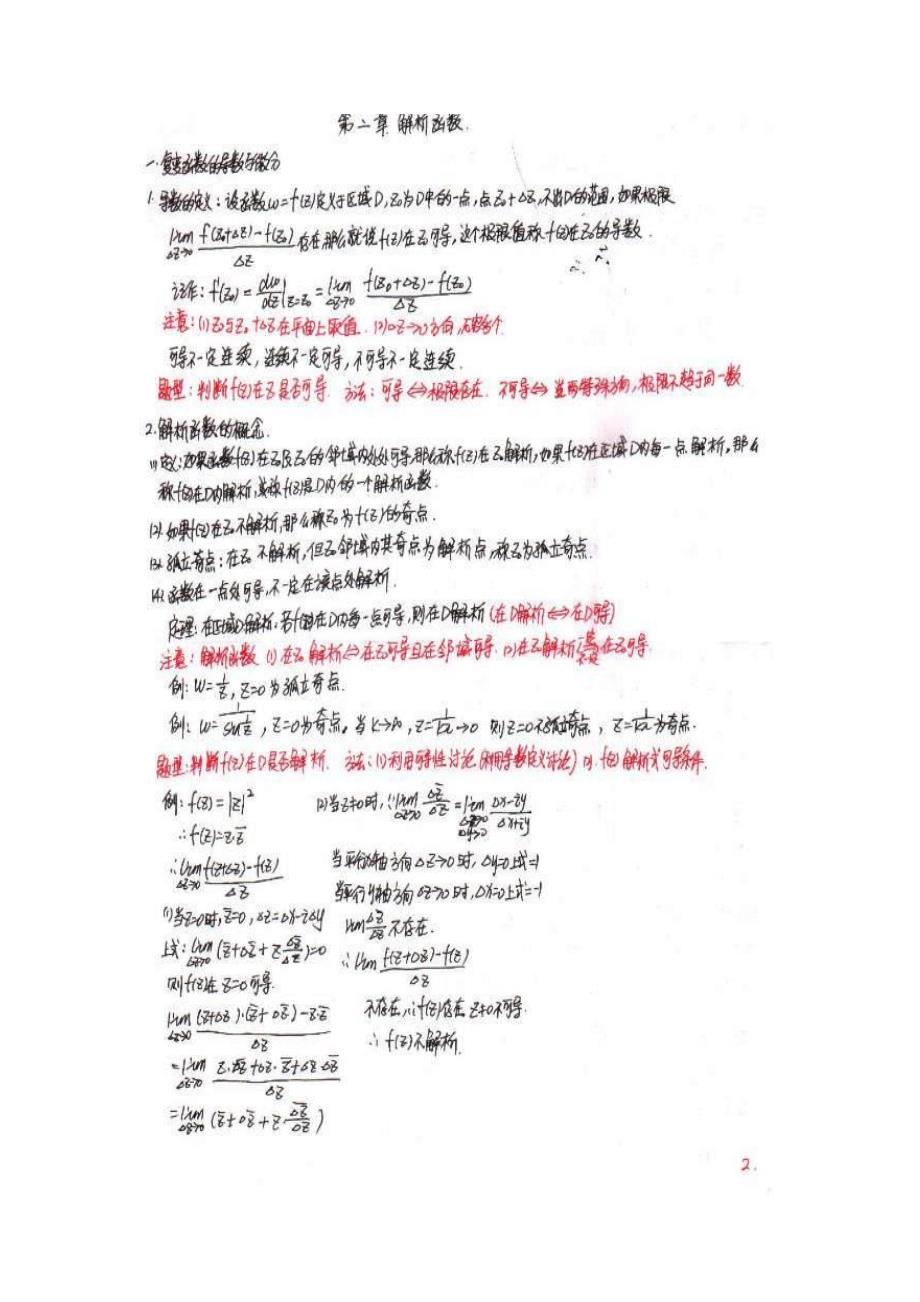 第二章 解析函数.
一.复变函数的导数与微分
1.导数的定义：设函数w=f(z)定义于区域D,z₀为D中的一点,点z₀+Δz,不出D的范围,如果极限
lim(Δz→0) [f(z₀+Δz)-f(z₀)]/Δz 存在那么就说f(z)在z₀可导,这个极限值称f(z)在z₀的导数.
记作: f'(z₀)=dw/dz|z=z₀=lim(Δz→0) [f(z₀+Δz)-f(z₀)]/Δz
注意:(1)z₀与z₀+Δz在平面上取值. (2)Δz→0方向,无穷多个
可导不一定连续,连续不一定可导,不可导不一定连续.
题型:判断f(z)在z是否可导. 方法:可导⇔极限存在. 不可导⇔当两特殊方向,极限不趋于同一数
2.解析函数的概念.
(1)定义:如果函数f(z)在z₀及z₀的邻域内处处可导,那么称f(z)在z₀解析,如果f(z)在区域D内每一点解析,那么
称f(z)在D内解析,或称f(z)是D内的一个解析函数.
(2)如果f(z)在z₀不解析,那么称z₀为f(z)的奇点.
(3)孤立奇点:在z₀不解析,但z₀邻域内其奇点为解析点,称z₀为孤立奇点.
(4)函数在一点处可导,不一定在该点处解析.
定理:在区域D解析.若f(z)在D内每一点可导,则在D解析(在D解析⇔在D可导)
注意:解析函数 (1)在z₀解析⇔在z₀可导且在邻域可导. (2)在z₀解析 一定 不一定 在z₀可导.
例:W=1/z,z=0为孤立奇点.
例:w=1/sin(1/z),z=0为奇点。当k→∞,z=1/kπ→0 则z=0不孤立奇点,z=1/kπ为奇点.
题型:判断f(z)在D是否解析. 方法:(1)利用可导性讨论(利用导数定义讨论) (2).f(z)解析式可导条件.
例:f(z)=|z|²
∴f(z)=z·z̄
∴lim(Δz→0) [f(z+Δz)-f(z)]/Δz
(1)当z=0时,z̄=0,Δz̄=Δx-iΔy
上式:lim(Δz→0) (z̄+Δz̄+z Δz̄/Δz)=0
则f(z)在z=0可导.
lim(Δz→0) [(z+Δz)·(z̄+Δz̄)-z·z̄]/Δz
=lim(Δz→0) [z·Δz̄+Δz·z̄+Δz·Δz̄]/Δz
=lim(Δz→0) (z̄+Δz̄+z·Δz̄/Δz)
(2)当z≠0时,∵lim(Δz→0) Δz̄/Δz=lim(Δx→0 Δy→0) (Δx-iy)/(Δx+iy)
当平行x轴方向Δz→0时,Δy=0上式=1
当平行y轴方向Δz→0时,Δx=0上式=-1
lim Δz̄/Δz 不存在.
∴lim [f(z+Δz)-f(z)]/Δz
不存在,∴f(z)在z≠0不可导.
∴f(z)不解析.
2.